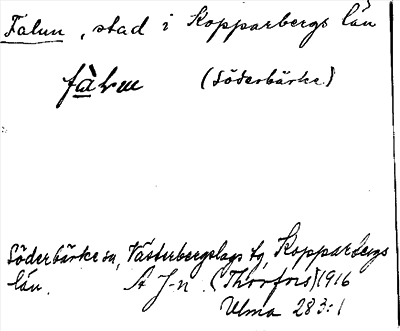 Falun, stad i Kopparbergs län
(Söderbärke)
Söderbärke sn, Västerbergslags tg, Kopparbergs
län. A J-n. (Thorfors) 1916
Ulma 283:1